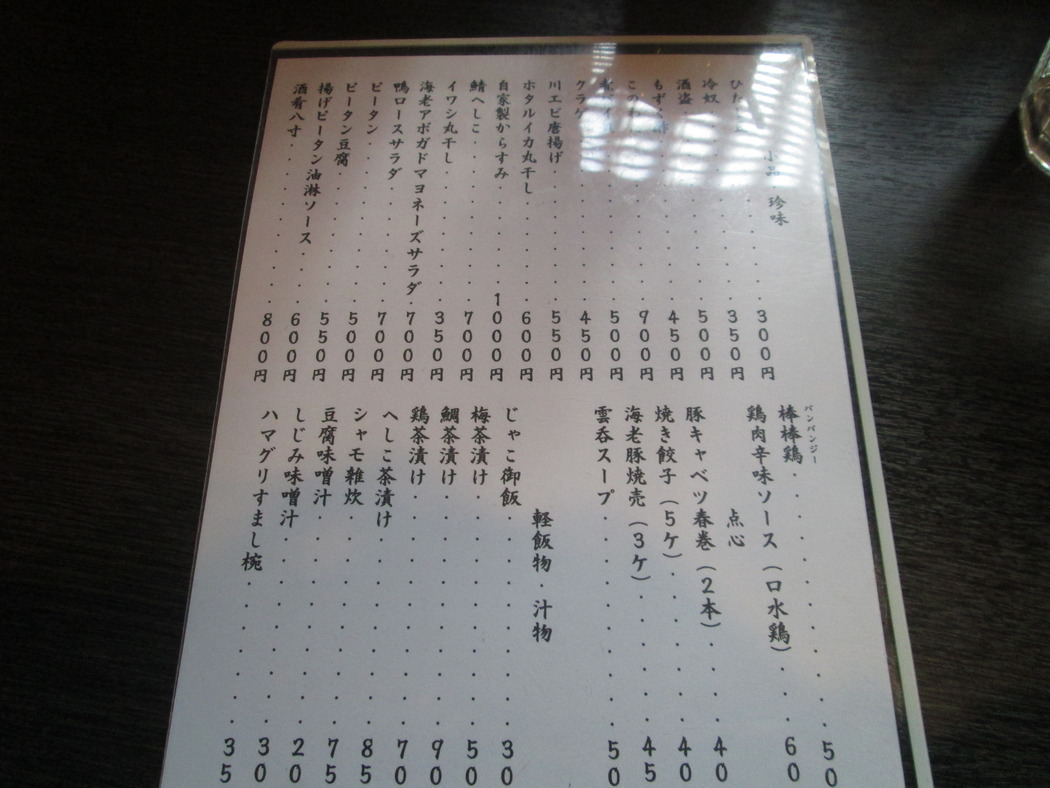 小品・珍味
ひた・・・・・・300円
冷奴・・・・・・350円
酒盗・・・・・・500円
もずく酢・・・・・・450円
このわた・・・・・・900円
500円
クラゲ・・・・・・450円
川エビ唐揚げ・・・・・・550円
ホタルイカ丸干し・・・・・600円
自家製からすみ・・・・・1000円
鯖へしこ・・・・・・700円
イワシ丸干し・・・・・・350円
海老アボガドマヨネーズサラダ・700円
鴨ロースサラダ・・・・・700円
ピータン・・・・・・・500円
ピータン豆腐・・・・・・550円
揚げピータン油淋ソース・・・600円
酒肴八寸・・・・・・・800円
棒棒鶏・・・・・・・・50
バンバンジー
鶏肉辛味ソース（口水鶏）・・・60
点心
豚キャベツ春巻（2本）・・・40
焼き餃子（5ケ）・・・・・40
海老豚焼売（3ケ）・・・・45
雲呑スープ・・・・・・・50
軽飯物・汁物
じゃこ御飯・・・・・・・30
梅茶漬け・・・・・・・50
鯛茶漬け・・・・・・・90
鶏茶漬け・・・・・・・70
へしこ茶漬け・・・・・・85
シャモ雑炊・・・・・・・75
豆腐味噌汁・・・・・・・20
しじみ味噌汁・・・・・・30
ハマグリすまし椀・・・・・35